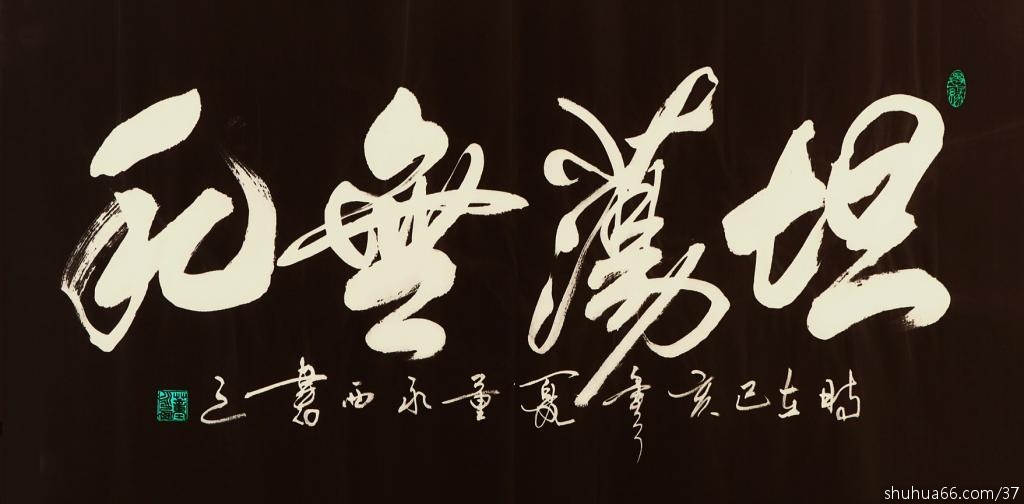 坦蕩無私
時在己亥年夏董永西書之
shuhua66.com/37